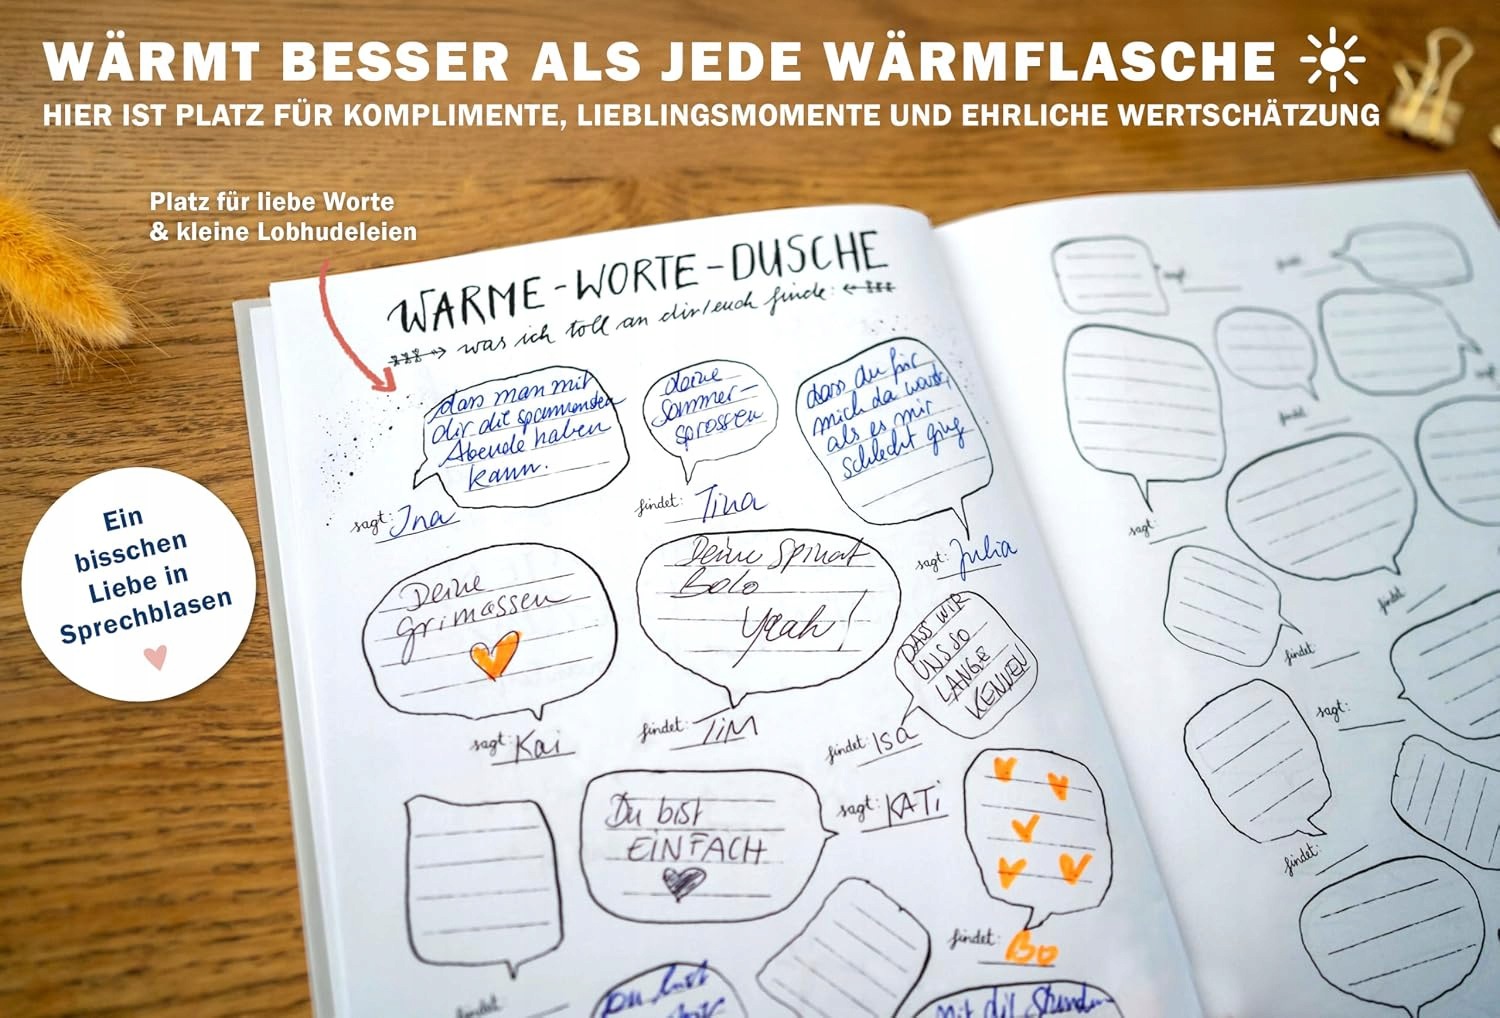 WÄRMT BESSER ALS JEDE WÄRMFLASCHE
HIER IST PLATZ FÜR KOMPLIMENTE, LIEBLINGSMOMENTE UND EHRLICHE WERTSCHÄTZUNG
Platz für liebe Worte
& kleine Lobhudeleien
WARME-WORTE-DUSCHE
was ich toll an dir/euch finde:
dass man mit
dir die spannensten
Abende haben
kann.
sagt: Ina
deine
Sommer-
sprossen
findet: Tina
dass du für
mich da warst,
als es mir
schlecht ging
sagt: Julia
Deine
grimassen
sagt: Kai
Deine Spinat
Bolo
Yeah!
findet: TiM
DASS WIR
UNS SO
LANGE
KENNEN
findet: ISA
Du bist
EINFACH
sagt: KATi
findet: Bo
findet:
Du bist
mit dir Stunden
sagt:
findet:
findet:
findet:
sagt:
findet:
Ein
bisschen
Liebe in
Sprechblasen